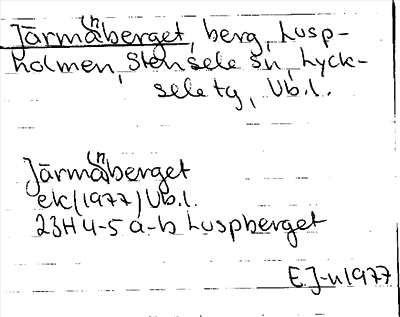 Järmå(n)berget, berg, Lusp-
holmen, Stensele sn, Lyck-
sele tg, Vb.l.
Järmå(n)berget
ek (1977) Vb.l.
23H 4-5 a-b Luspberget
E.J-n 1977